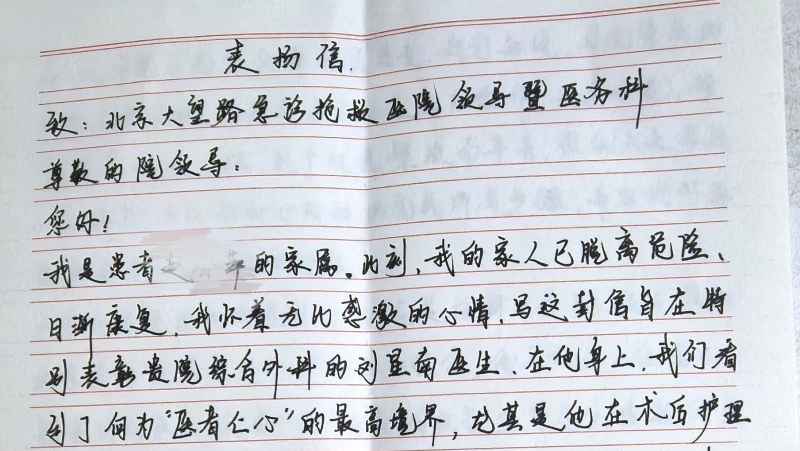 表扬信.
致：北京大望路急诊抢救医院领导暨医务科
尊敬的院领导：
您好！
我是患者的家属。此刻，我的家人已脱离危险、
日渐康复，我怀着无比感激的心情，写这封信旨在特
别表彰贵院综合外科的刘显南医生。在他身上，我们看
到了何为“医者仁心”的最高境界，尤其是他在术后护理